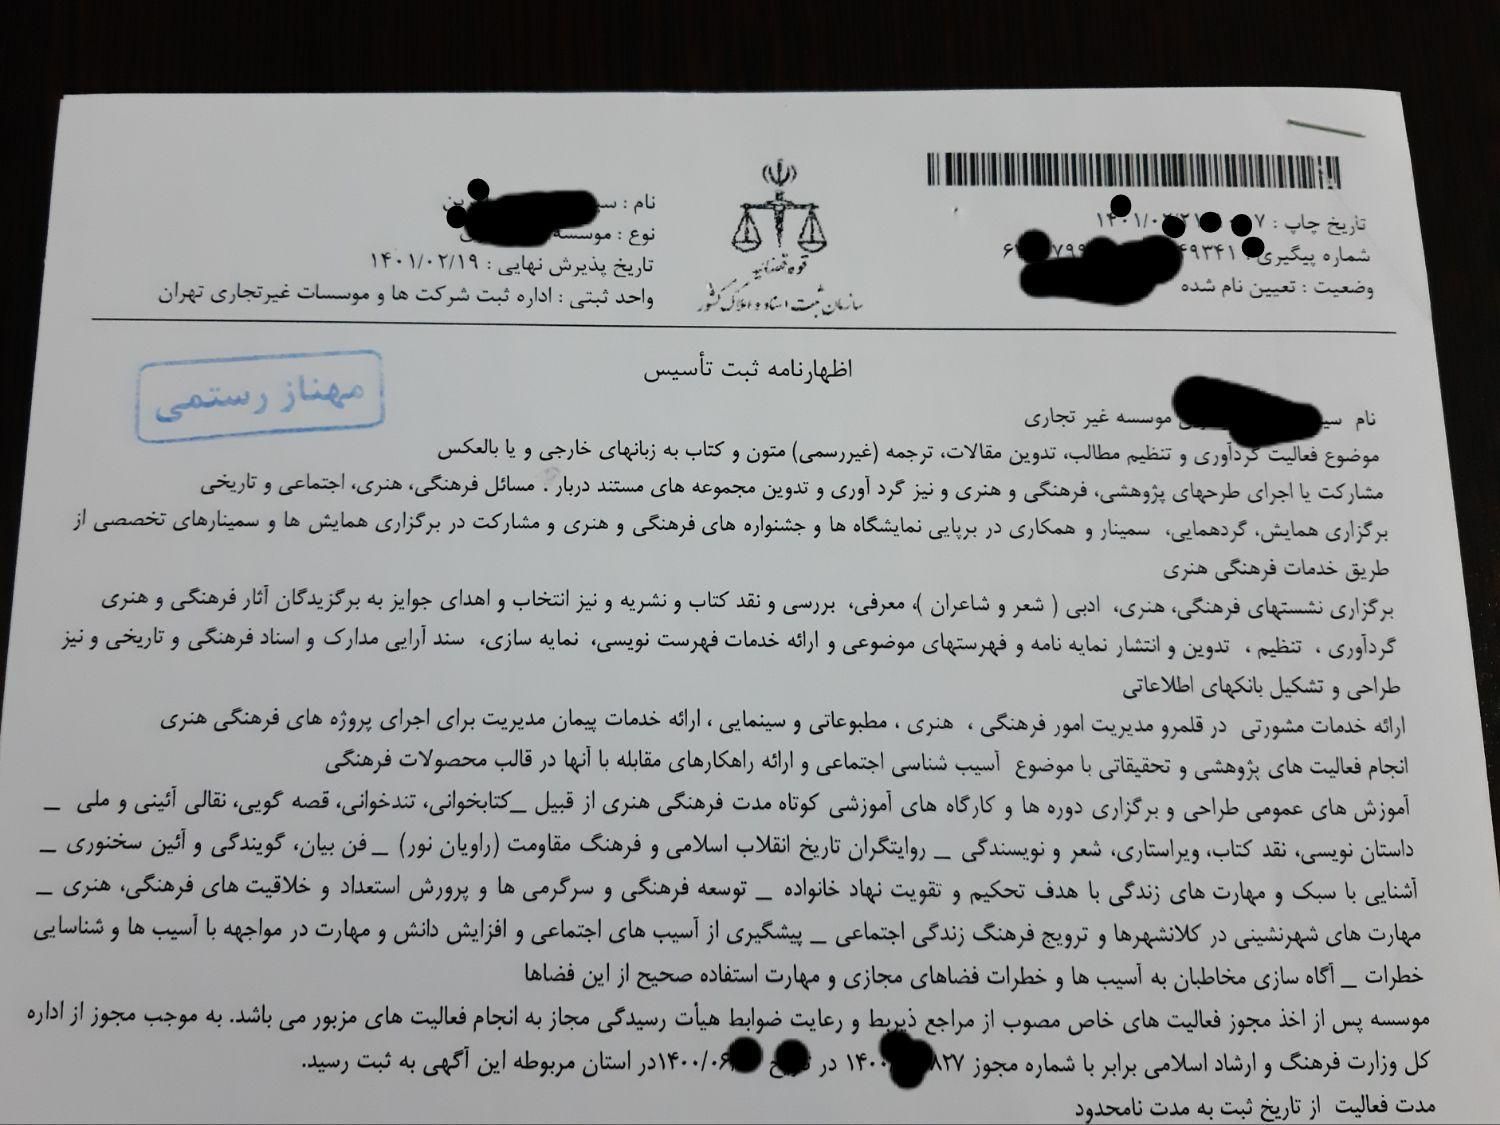 تاریخ چاپ :
شماره پیگیری :
وضعیت : تعیین نام شده
قوه قضائیه
سازمان ثبت اسناد و املاک کشور
نام :
نوع : موسسه
تاریخ پذیرش نهایی : ۱۴۰۱/۰۲/۱۹
واحد ثبتی : اداره ثبت شرکت ها و موسسات غیرتجاری تهران
اظهارنامه ثبت تأسیس
مهناز رستمی
نام موسسه غیر تجاری
موضوع فعالیت گردآوری و تنظیم مطالب، تدوین مقالات، ترجمه (غیررسمی) متون و کتاب به زبانهای خارجی و یا بالعکس
مشارکت یا اجرای طرحهای پژوهشی، فرهنگی و هنری و نیز گرد آوری و تدوین مجموعه های مستند دربار . مسائل فرهنگی، هنری، اجتماعی و تاریخی
برگزاری همایش، گردهمایی، سمینار و همکاری در برپایی نمایشگاه ها و جشنواره های فرهنگی و هنری و مشارکت در برگزاری همایش ها و سمینارهای تخصصی از
طریق خدمات فرهنگی هنری
برگزاری نشستهای فرهنگی، هنری، ادبی ( شعر و شاعران )، معرفی، بررسی و نقد کتاب و نشریه و نیز انتخاب و اهدای جوایز به برگزیدگان آثار فرهنگی و هنری
گردآوری ، تنظیم ، تدوین و انتشار نمایه نامه و فهرستهای موضوعی و ارائه خدمات فهرست نویسی، نمایه سازی، سند آرایی مدارک و اسناد فرهنگی و تاریخی و نیز
طراحی و تشکیل بانکهای اطلاعاتی
ارائه خدمات مشورتی در قلمرو مدیریت امور فرهنگی ، هنری ، مطبوعاتی و سینمایی ، ارائه خدمات پیمان مدیریت برای اجرای پروژه های فرهنگی هنری
انجام فعالیت های پژوهشی و تحقیقاتی با موضوع آسیب شناسی اجتماعی و ارائه راهکارهای مقابله با آنها در قالب محصولات فرهنگی
آموزش های عمومی طراحی و برگزاری دوره ها و کارگاه های آموزشی کوتاه مدت فرهنگی هنری از قبیل _کتابخوانی، تندخوانی، قصه گویی، نقالی آئینی و ملی _
داستان نویسی، نقد کتاب، ویراستاری، شعر و نویسندگی _ روایتگران تاریخ انقلاب اسلامی و فرهنگ مقاومت (راویان نور) _ فن بیان، گویندگی و آئین سخنوری _
آشنایی با سبک و مهارت های زندگی با هدف تحکیم و تقویت نهاد خانواده _ توسعه فرهنگی و سرگرمی ها و پرورش استعداد و خلاقیت های فرهنگی، هنری _
مهارت های شهرنشینی در کلانشهرها و ترویج فرهنگ زندگی اجتماعی _ پیشگیری از آسیب های اجتماعی و افزایش دانش و مهارت در مواجهه با آسیب ها و شناسایی
خطرات _ آگاه سازی مخاطبان به آسیب ها و خطرات فضاهای مجازی و مهارت استفاده صحیح از این فضاها
موسسه پس از اخذ مجوز فعالیت های خاص مصوب از مراجع ذیربط و رعایت ضوابط هیأت رسیدگی مجاز به انجام فعالیت های مزبور می باشد. به موجب مجوز از اداره
کل وزارت فرهنگ و ارشاد اسلامی برابر با شماره مجوز در تاریخ در استان مربوطه این آگهی به ثبت رسید.
مدت فعالیت از تاریخ ثبت به مدت نامحدود